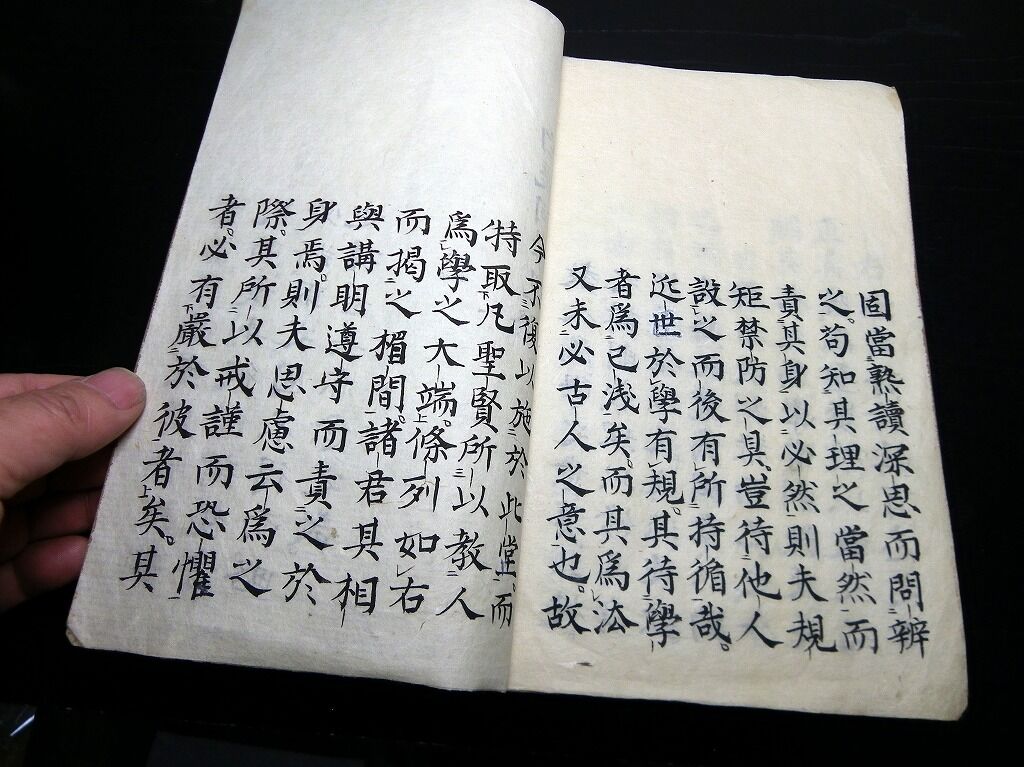 固當熟讀深思而問辨
之。苟知其理之當然而
責其身以必然則夫規
矩禁防之具、豈待他人
設之而後有所持循哉。
近世於學有規。其待學
者爲已浅矣。而其爲法
又未必古人之意也。故
今不復以施於此堂。而
特取凡聖賢所以教人
爲學之大端。條列如右
而揭之楣間。諸君其相
與講明遵守而責之於
身焉。則夫思慮云爲之
際。其所以戒謹而恐懼
者。必有嚴於彼者矣。其